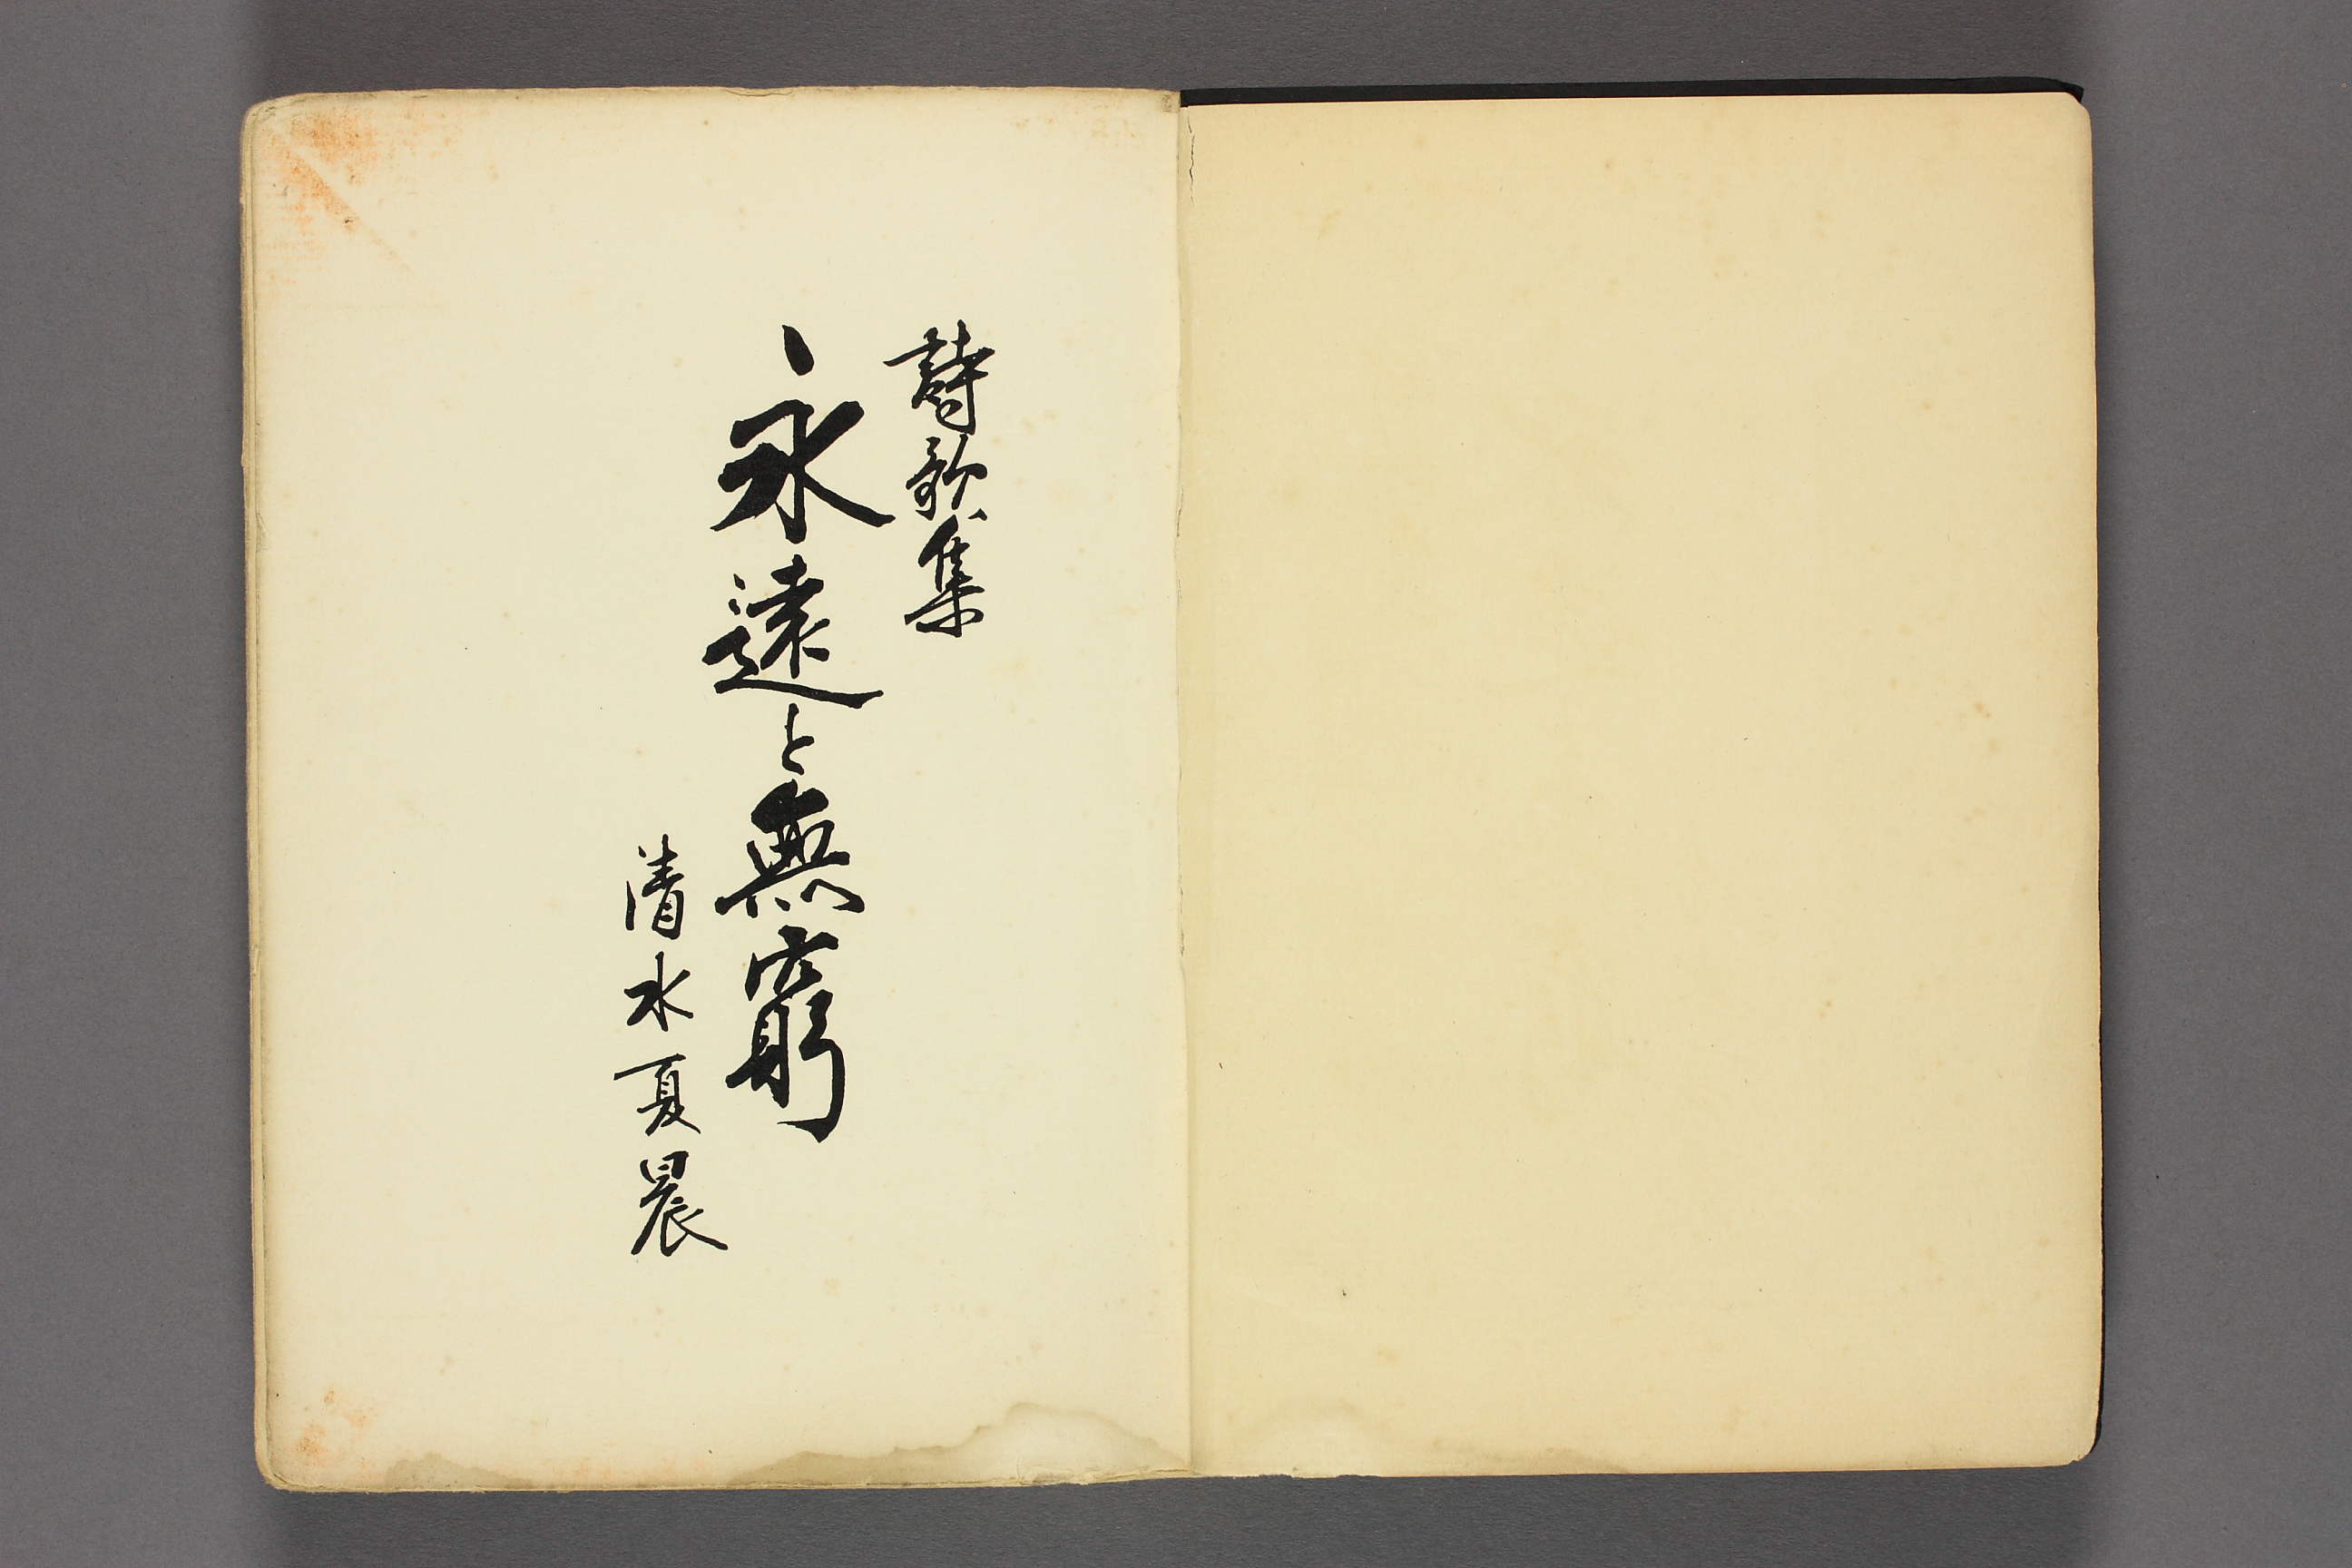 詩歌集
永遠と無窮
清水夏晨